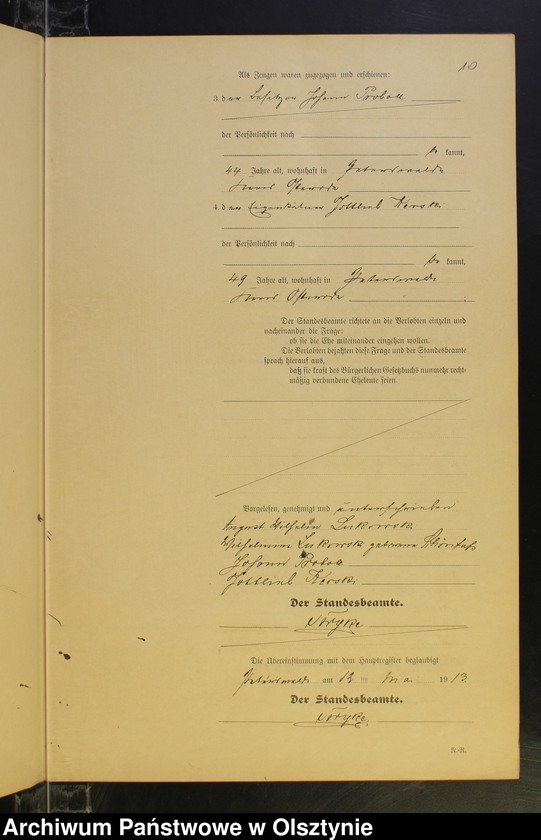 10
Als Zeugen waren zugezogen und erschienen:
3. der Besitzer Johann
der Persönlichkeit nach
be kannt,
44 Jahre alt, wohnhaft in Peterswalde
Kreis Osterode
4. der Eigenkätner Gottlieb
der Persönlichkeit nach
be kannt,
49 Jahre alt, wohnhaft in Peterswalde
Kreis Osterode
Der Standesbeamte richtete an die Verlobten einzeln und
nacheinander die Frage:
ob sie die Ehe miteinander eingehen wollen.
Die Verlobten bejahten diese Frage und der Standesbeamte
sprach hierauf aus,
daß sie kraft des Bürgerlichen Gesetzbuchs nunmehr recht-
mäßig verbundene Eheleute seien.
Vorgelesen, genehmigt und unterschrieben
August Wilhelm
Wilhelmine geborene
Johann
Gottlieb
Der Standesbeamte.
Die Übereinstimmung mit dem Hauptregister beglaubigt
Peterswalde am 12 ten 1913
Der Standesbeamte.
Archiwum Państwowe w Olsztynie